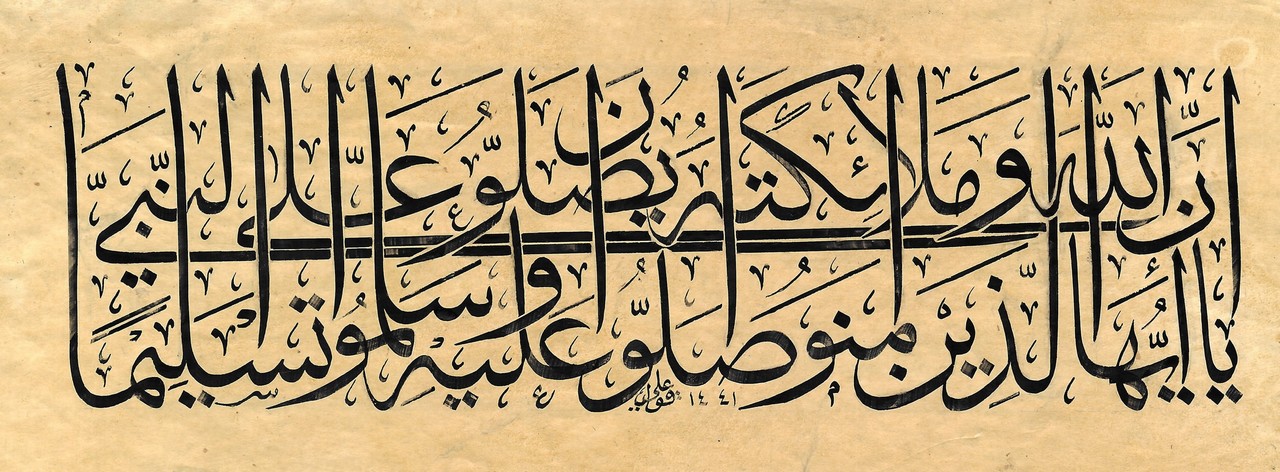 إِنَّ اللهَ وَمَلَائِكَتَهُ يُصَلُّونَ عَلَى النَّبِيِّ
يَا أَيُّهَا الَّذِينَ آمَنُوا صَلُّوا عَلَيْهِ وَسَلِّمُوا تَسْلِيمًا
١٤٤١